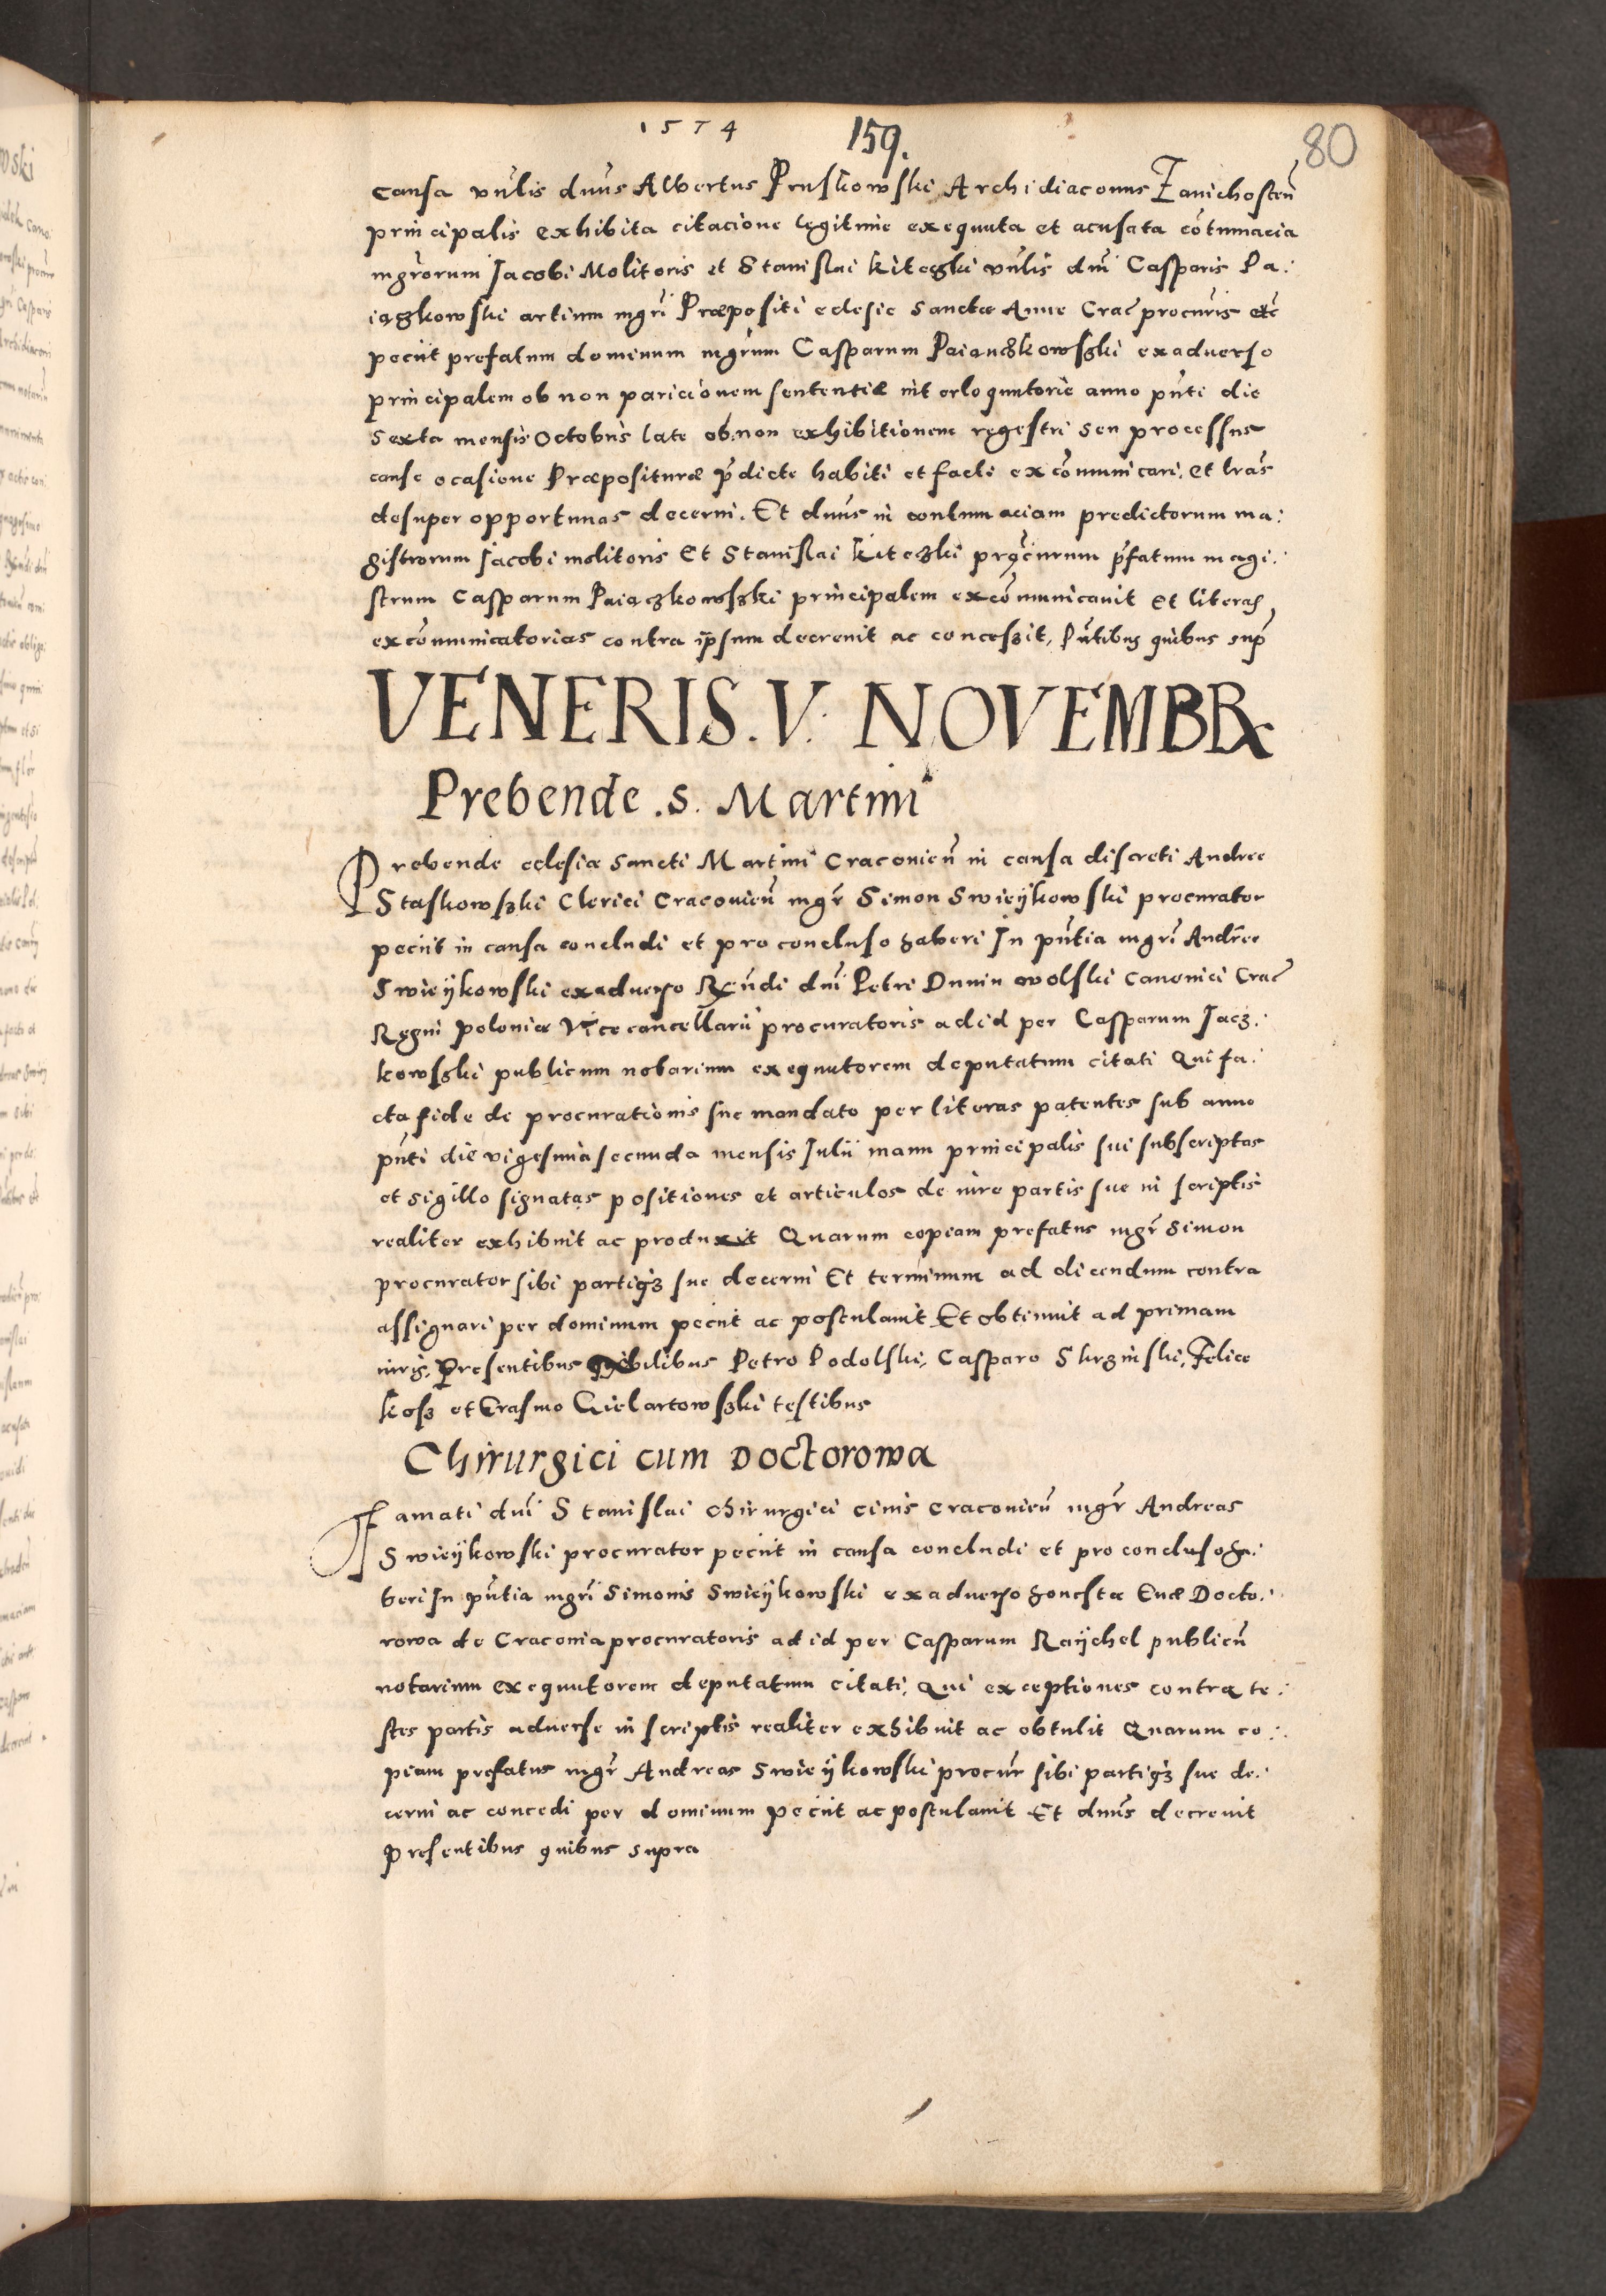 1574 159. 80
causa vnlis dnus Albertus Pruskowski Archidiaconus Zauichosten
principalis exhibita citacione legitime exequuta et acusata cōtumacia
mgrorum Jacobi Molitoris et Stanislai Kiteczki vnlis dni Casparis Pa:
iączkowski artium mgri Præpositi eclesie Sanctæ Anne Crac procuris etc
peciit prefatum dominum mgrum Casparum Paianczkowszki exaduerso
principalem ob non paricionem sententiæ interloquutorie anno pñti die
Sexta mensis Octobris late ob non exhibitionem regestri seu processus
cause ocasione Præpositure p̃dicte habiti et facti excōmunicari, et lr̃as
desuper opportunas decerni. Et dnus in contumaciam predictorum ma:
gistrorum Jacobi molitoris Et Stanislai Kiteczki procurum p̃fatum magi:
strum Casparum Paiączkowszki principalem excōmunicauit Et literas
excōmunicatorias contra ipsum decreuit ac conceszit, Pñtibus quibus sup
VENERIS. V. NOVEMBR
Prebende .S. Martini
Prebende eclesiæ Sancti Martini Cracouien in causa discreti Andree
Staskowszki Clerici Cracouien mgr Simon Swieÿkowski procurator
peciit in causa concludi et pro concluso haberi In pñtia mgri Andree
Swieÿkowski exaduerso Rñdi dni Petri Dunin wolski Canonici Crac
Regni poloniæ Vicecancellarii procuratoris ad id per Casparum Jacz:
kowszki publicum notarium exequutorem deputatum citati Qui fa:
cta fide de procurationis sue mandato per literas patentes sub anno
pñti die vigesima secunda mensis Julii manu principalis sui subscriptas
et sigillo signatas positiones et articulos de iure partis sue in scriptis
realiter exhibuit ac produxit Quarum copiam prefatus mgr Simon
procurator sibi partiqz sue decerni Et terminum ad dicendum contra
assignari per dominum peciit ac postulauit Et obtinuit ad primam
iuris, Presentibus nobilibus Petro Podolski, Casparo Skrzinski, Felice
Kosz et Erasmo Gielartowszki testibus
Chirurgici cum Doctorowa
Famati dni Stanislai chirurgici ciuis cracouien mgr Andreas
Swieÿkowski procurator peciit in causa concludi et pro concluso ha:
beri In pñtia mgri Simonis Swieÿkowski exaduerso honestæ Euæ Docto:
rowa de Cracouia procuratoris ad id per Casparum Raÿchel publicū
notarium exequutorem deputatum citati, Qui exceptiones contra te:
stes partis aduerse in scriptis realiter exhibuit ac obtulit Quarum co:
piam prefatus mgr Andreas Swieÿkowski procur sibi partiqz sue de:
cerni ac concedi per dominum peciit ac postulauit Et dnus decreuit
Presentibus quibus supra